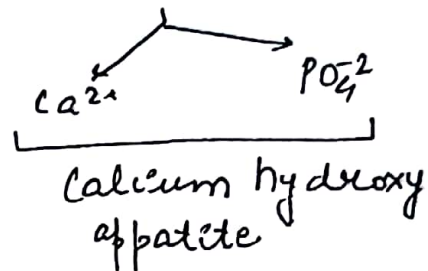 Ca²⁺ PO₄⁻²
Calcium hydroxy
appatite